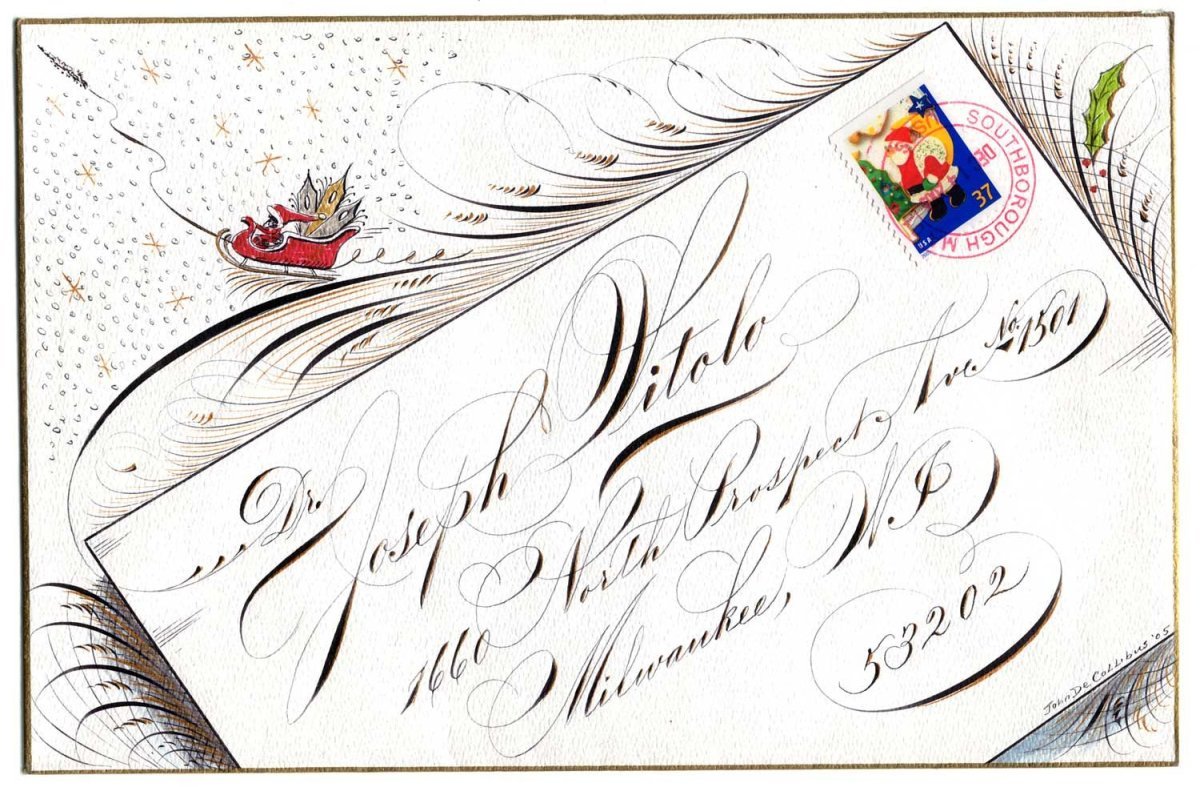 Dr. Joseph Vitolo
1660 North Prospect Ave. No. 1501
Milwaukee, WI
53202
37
USA
SOUTHBOROUGH M
30
John De Collibus '05